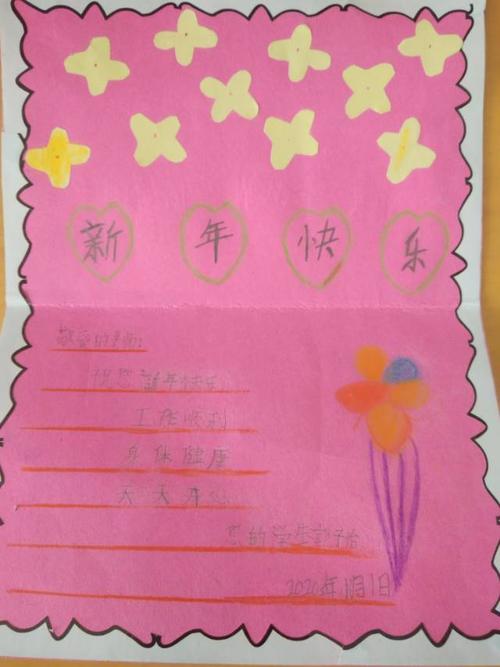 新年快乐
敬爱的老师:
祝您新年快乐
工作顺利
身体健康
天天开心
您的学生 子怡
2020年1月1日